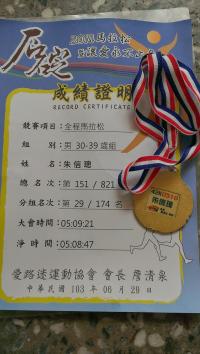 石碇
成績證明
RECORD CERTIFICATE
競賽項目：全程馬拉松
組　別：男 30-39歲組
姓　名：朱信聰
總名次：第 151 / 821
分組名次：第 29 / 174 名
大會時間：05:09:21
淨時間：05:08:47
愛路跑運動協會 會長 詹清泉
中華民國 103 年 06 月 29 日